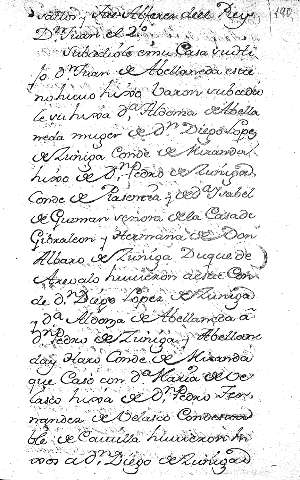 190
y fue Alferez del Rey
Dⁿ Juan el 2º
Subcediole en su Casa su hi
jo Dⁿ Juan de Abellaneda este
no huuo hijo Varon subcedio
le su hija Dª Aldonza de Abella
neda muger de Dⁿ Diego Lopez
de Zuñiga Conde de Miranda,
hijo de Dⁿ Pedro de Zuñiga
Conde de Plasencia y de Dª Ysabel
de Guzman señora de la Casa de
Gibraleon y Hermano de Don
Albaro de Zuñiga Duque de
Arevalo huuieron este Con
de Dⁿ Diego Lopez de Zuñiga
y Dª Aldonza de Abellaneda á
Dⁿ Pedro de Zuñiga y Abellane
da y Haro Conde de Miranda
que Casó con Dª Maria de Ve
lasco hija de Dⁿ Pedro Fer
nandez de Velasco Condesta
ble de Castilla huuieron hi
jos a Dⁿ Diego de Zuñiga